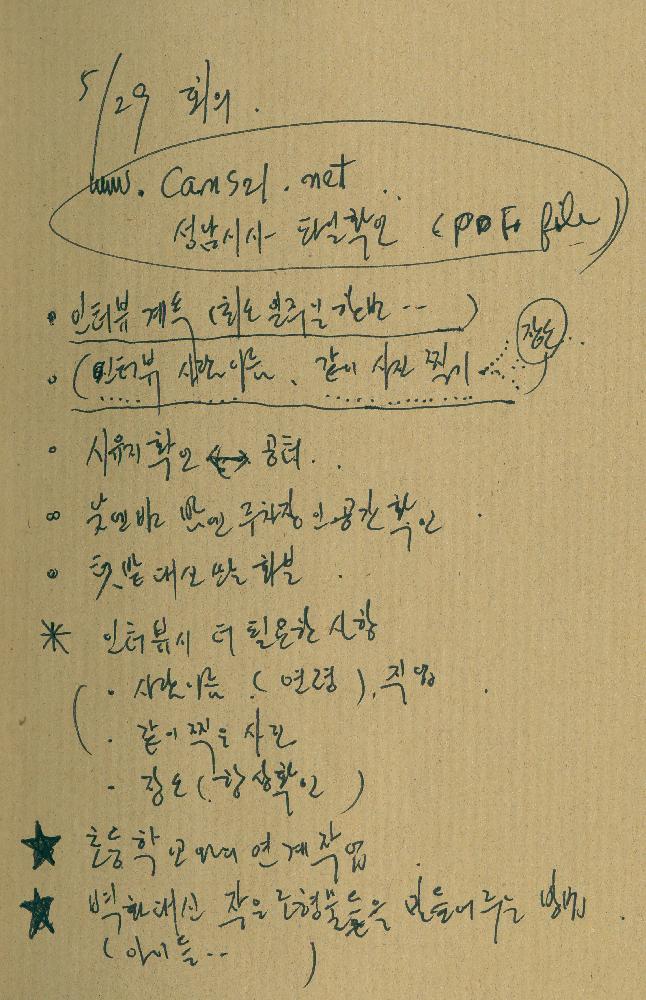 5/29 회의.
www.cans21.net
성남시사 파일확인 (PDF file)
• 인터뷰 계속 (최소 일주일 한번 ‥ )
• (인터뷰 사람이름, 같이 사진 찍기 장소
• 시유지 확인 ↔ 공터.
∞ 낮엔 밤엔 주차장인 공간 확인.
• 텃밭 대신 만들 화분.
* 인터뷰시 더 필요한 사항
· 사람이름 (연령), 직업.
· 같이 찍은 사진
· 장소 (항상확인)
★ 초등학교와의 연계작업
★ 벽화대신 작은 조형물들을 만들어주는 방법.
(아이들‥ )